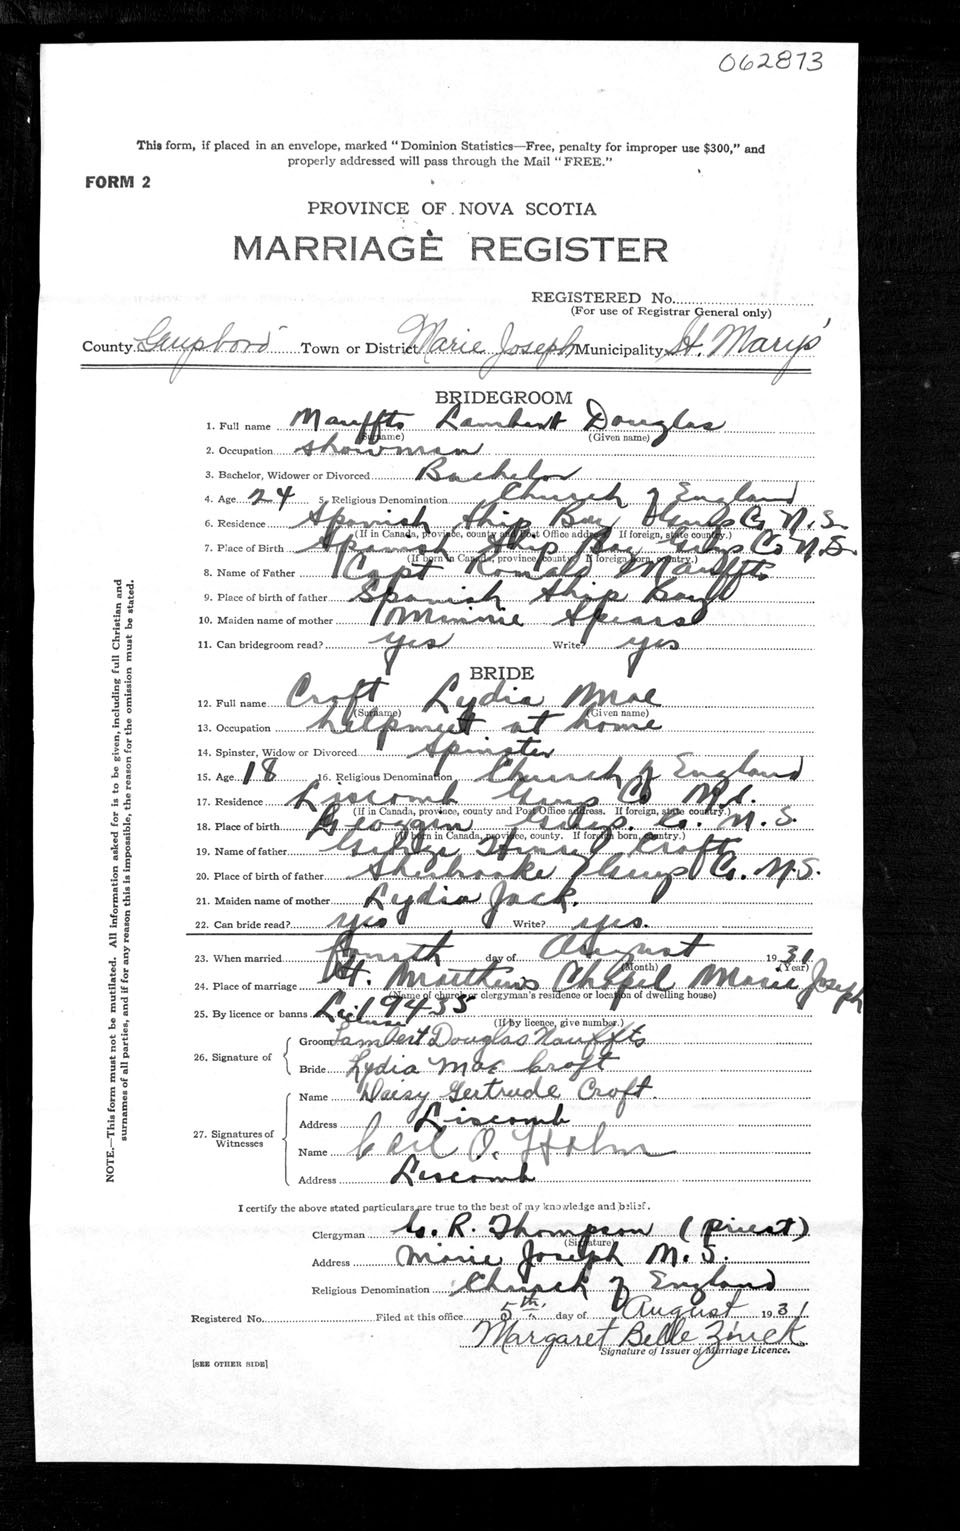 062873
This form, if placed in an envelope, marked "Dominion Statistics—Free, penalty for improper use $300," and
properly addressed will pass through the Mail "FREE."
FORM 2
PROVINCE OF NOVA SCOTIA
MARRIAGE REGISTER
REGISTERED No.
(For use of Registrar General only)
County Town or District Marie Joseph Municipality St. Mary's
BRIDEGROOM
1. Full name Mauffts Lambert Douglas
(Surname) (Given name)
2. Occupation showman
3. Bachelor, Widower or Divorced Bachelor
4. Age 24 5. Religious Denomination Church of England
6. Residence Spanish Ship Bay Guys Co N.S.
(If in Canada, province, county and Post Office address. If foreign, state country.)
7. Place of Birth Spanish Ship Bay Guys Co N.S.
(If born in Canada, province, county. If foreign born, country.)
8. Name of Father Capt Mauffts
9. Place of birth of father Spanish Ship Bay
10. Maiden name of mother Minnie Spears
11. Can bridegroom read? yes Write? yes
BRIDE
12. Full name Croft Lydia Mae
(Surname) (Given name)
13. Occupation helpmeet at home
14. Spinster, Widow or Divorced Spinster
15. Age 18 16. Religious Denomination Church of England
17. Residence Liscomb Guys Co N.S.
(If in Canada, province, county and Post Office address. If foreign, state country.)
18. Place of birth Guys. Co. N.S.
(If born in Canada, province, county. If foreign born, country.)
19. Name of father George Croft
20. Place of birth of father Sherbrooke Guys Co. N.S.
21. Maiden name of mother Lydia Jack.
22. Can bride read? yes Write? yes.
23. When married fourth day of August 1931
(Month) (Year)
24. Place of marriage St. Matthew's Chapel Marie Joseph
(Name of church or clergyman's residence or location of dwelling house)
25. By licence or banns License 19435
(If by licence, give number.)
26. Signature of
Groom Lambert Douglas Mauffts
Bride Lydia Mae Croft
27. Signatures of Witnesses
Name Daisy Gertrude Croft.
Address Liscomb
Name Carl O. Hahn
Address Liscomb
I certify the above stated particulars are true to the best of my knowledge and belief.
Clergyman R. Thompson (priest)
(Signature)
Address Marie Joseph N.S.
Religious Denomination Church of England
Registered No. Filed at this office 5th. day of August 1931
Margaret Belle Zinck
Signature of Issuer of Marriage Licence.
[SEE OTHER SIDE]
NOTE.—This form must not be mutilated. All information asked for is to be given, including full Christian and
surnames of all parties, and if for any reason this is impossible, the reason for the omission must be stated.